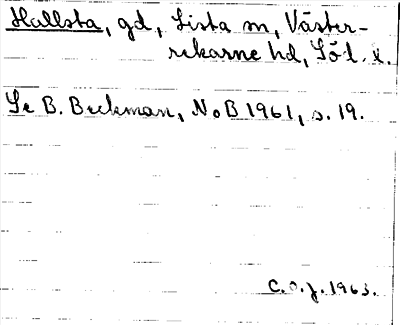 Hallsta, gd, Lista sn, Väster-
rekarne hd, Söd. l.
Se B. Beckman, NoB 1961, s. 19.
C.O.J. 1963.